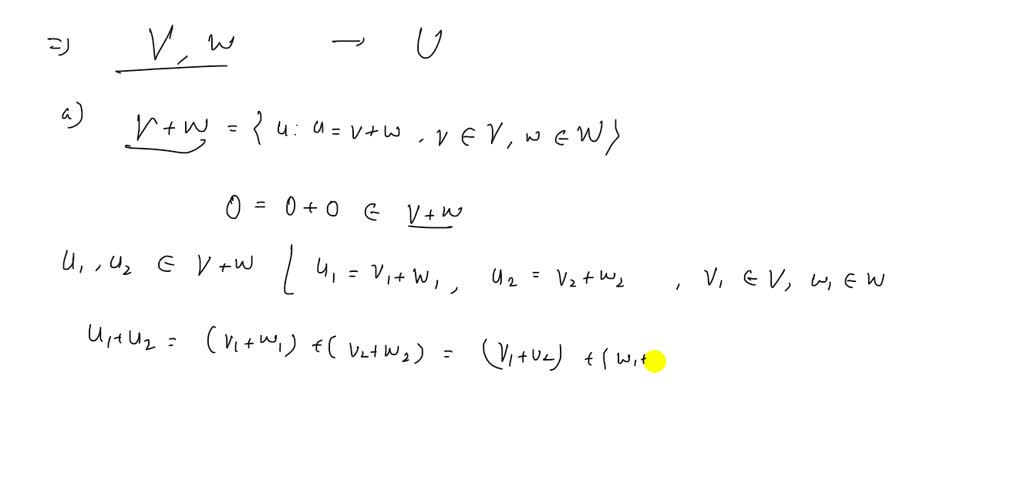 ⇒ V, W → U
a) V+W = { u : u = v+w , v ∈ V, w ∈ W }
0 = 0 + 0 ∈ V+W
u₁, u₂ ∈ V+W | u₁ = v₁+w₁, u₂ = v₂+w₂ , v₁ ∈ V, w₁ ∈ W
u₁+u₂ = (v₁+w₁) +(v₂+w₂) = (v₁+v₂) +(w₁+